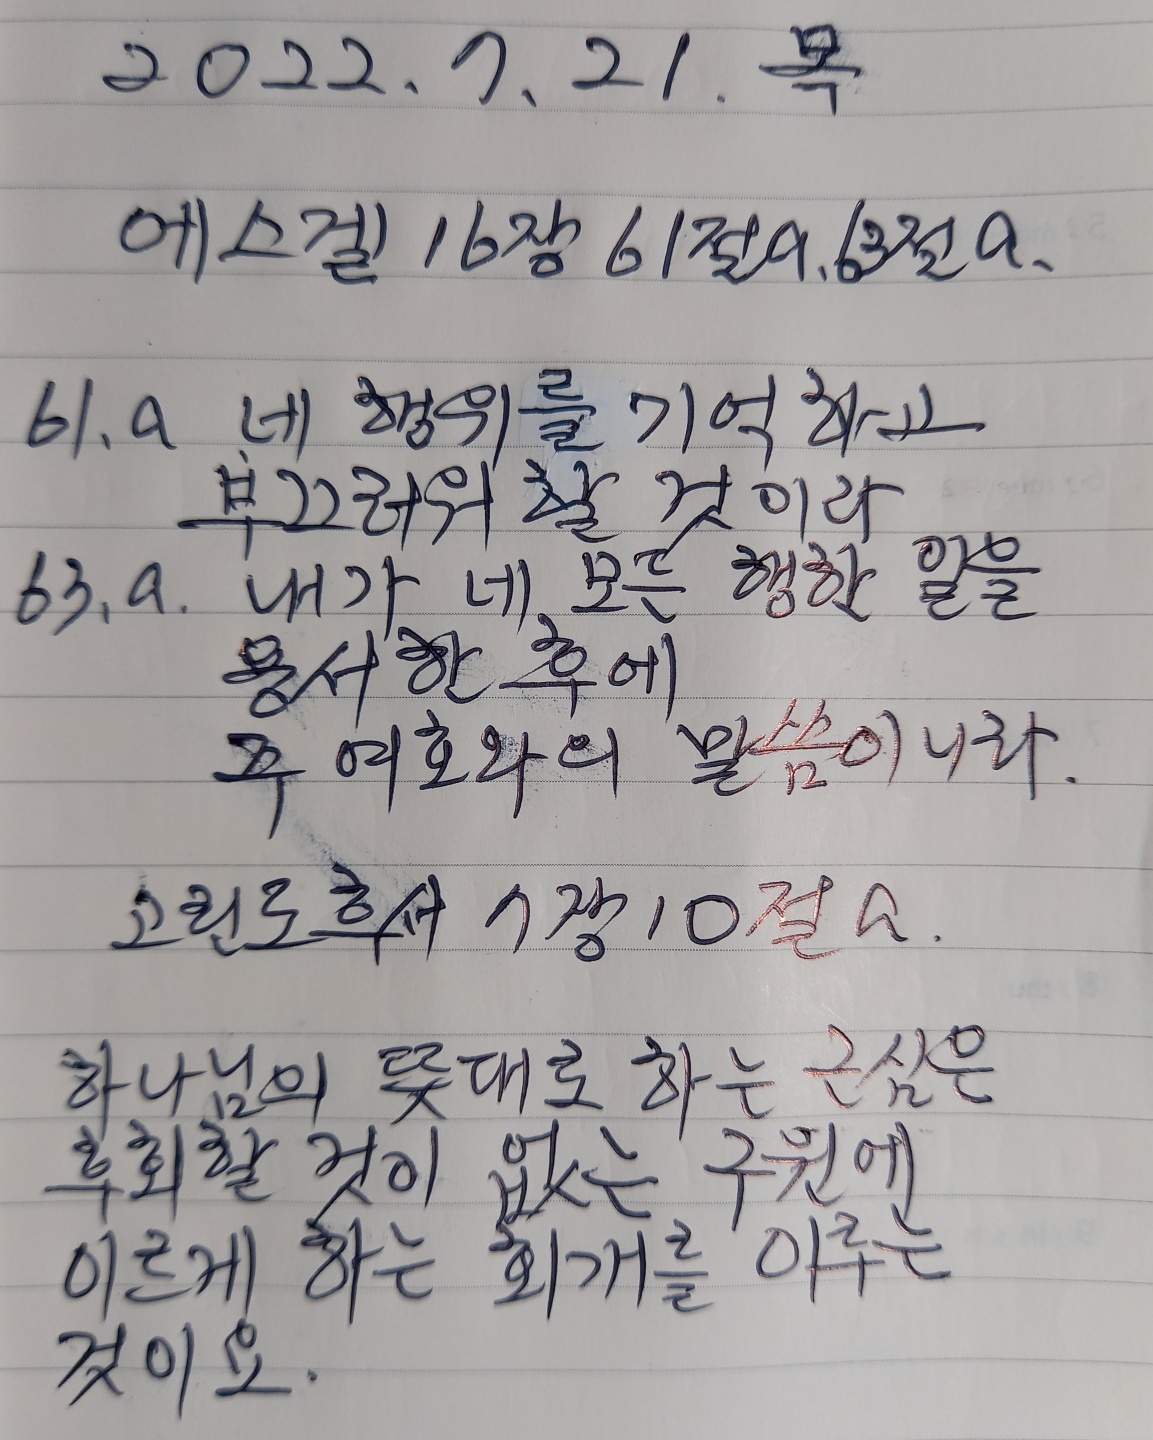 2022. 7. 21. 목
에스겔 16장 61절a. 63절 a.
61. a 네 행위를 기억하고
부끄러워 할 것이라
63. a. 내가 네 모든 행한 일을
용서한 후에
주 여호와의 말씀이니라.
고린도후서 7장 10절 a.
하나님의 뜻대로 하는 근심은
후회할 것이 없는 구원에
이르게 하는 회개를 이루는
것이요.